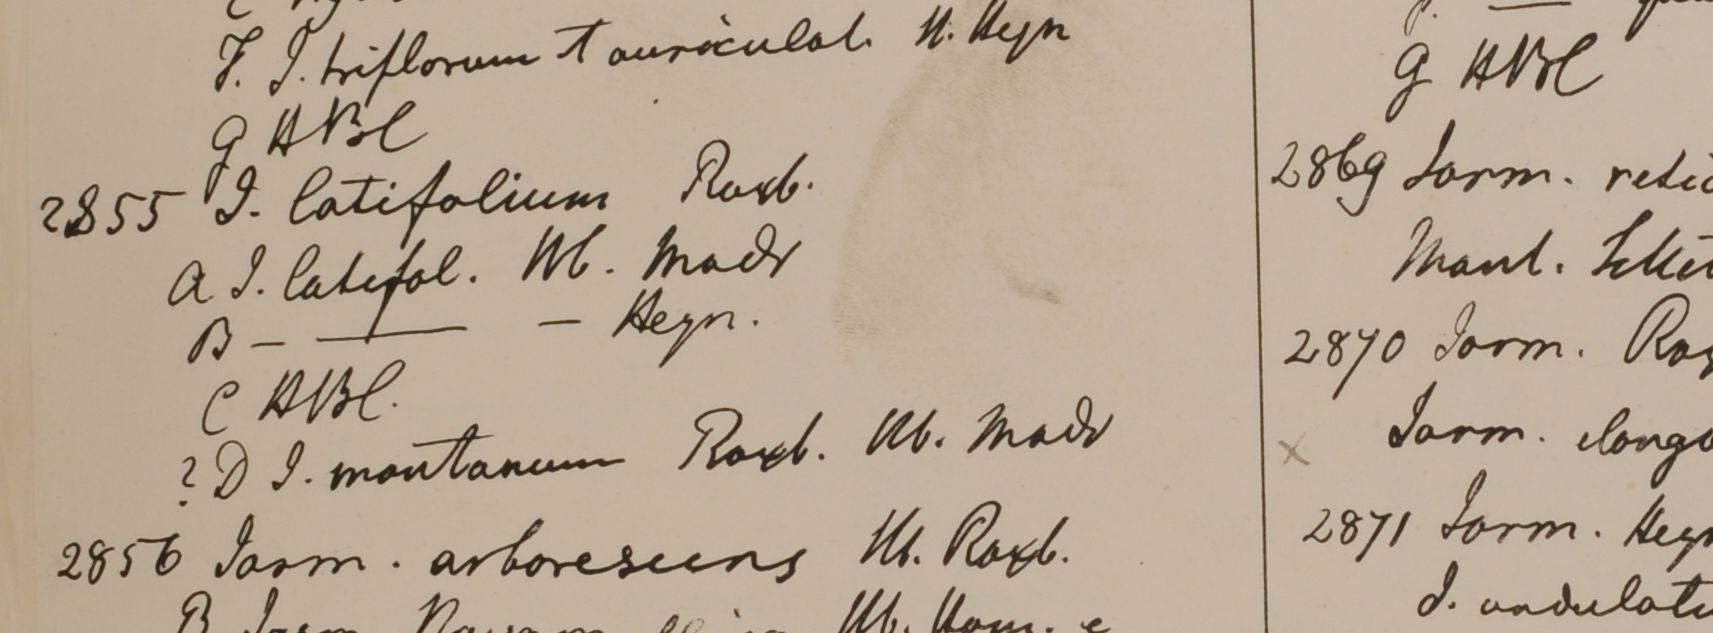 F. J. triflorum & auriculat. H. Heyn
G HBC
2855 J. latifolium Roxb.
A J. latifol. Hb. Madr
B — —— — Heyn.
C HBC.
? D J. montanum Roxb. Hb. Madr
2856 Jasm. arborescens Hb. Roxb.
B Jasm. Hb. Ham. e
G HBC
2869 Jasm. retic
2870 Jasm. Rox
x Jasm. elonga
2871 Jasm. Heyn
J. undulat